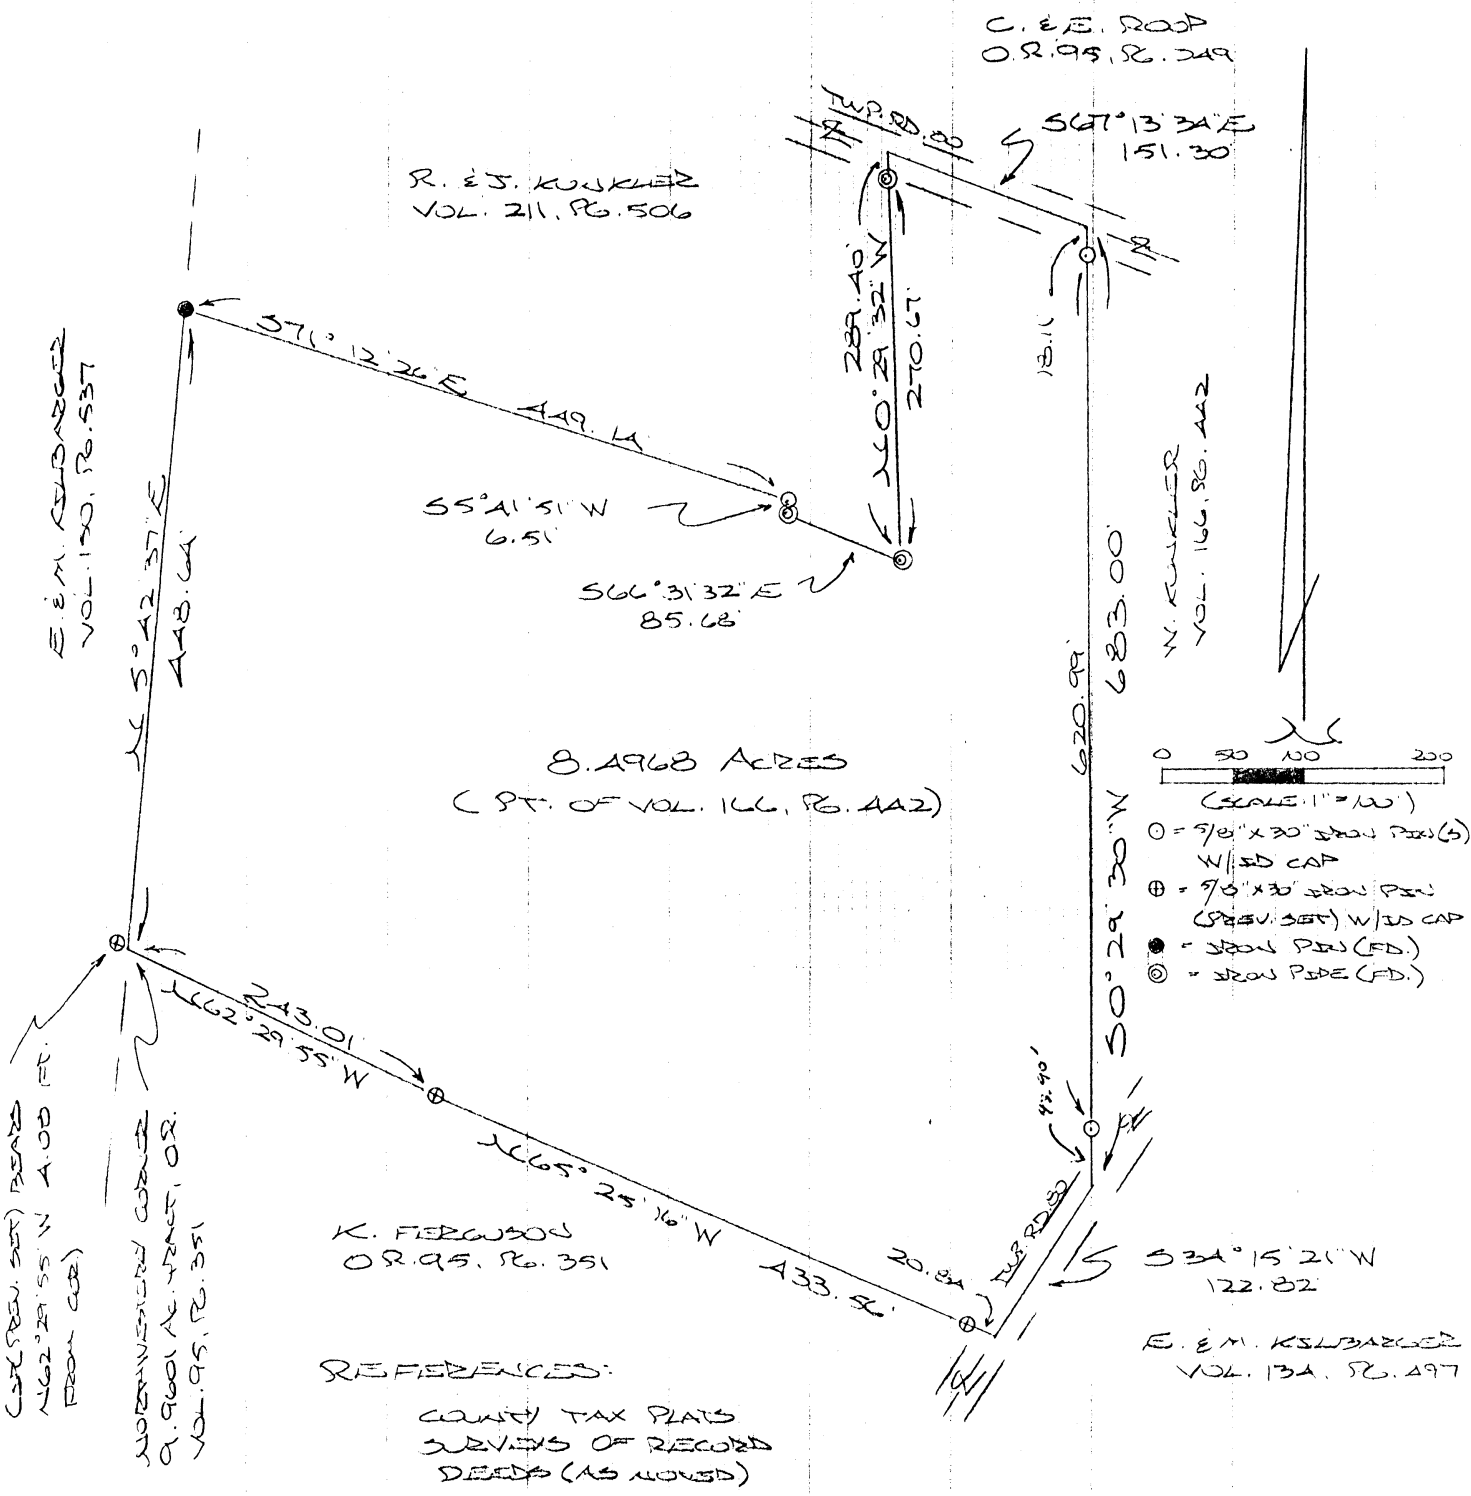 C. & E. ROOP
O.R. 95, PG. 349
TWP. RD. 80
S67°13'34"E
151.30'
R. & J. KUNKLER
VOL. 211, PG. 506
289.40'
N0°29'32"W
270.67'
18.11'
S71°12'26"E
449.14'
E. & M. KILBARGER
VOL. 150, PG. 537
N5°42'37"E
448.64'
S5°41'51"W
6.51'
S66°31'32"E
85.68'
W. KUNKLER
VOL. 166, PG. 442
683.00'
620.99'
S0°29'30"W
8.4968 ACRES
(PT. OF VOL. 166, PG. 442)
0 50 100 200
(SCALE: 1"=100')
= 5/8"X30" IRON PIN(S)
W/ID CAP
= 5/8"X30" IRON PIN
(PREV. SET) W/ID CAP
= IRON PIN (FD.)
= IRON PIPE (FD.)
N
243.01'
N62°29'55"W
N65°25'16"W
433.56'
20.84'
TWP. RD. 80
S34°15'21"W
122.82'
K. FERGUSON
O.R. 95, PG. 351
E. & M. KILBARGER
VOL. 134, PG. 497
(PREV. SET) BEARS
N62°29'55"W 4.00 FT.
FROM COR.)
NORTHWESTERN CORNER
9.9601 AC. TRACT, O.R.
VOL. 95, PG. 351
REFERENCES:
COUNTY TAX PLATS
SURVEYS OF RECORD
DEEDS (AS NOTED)